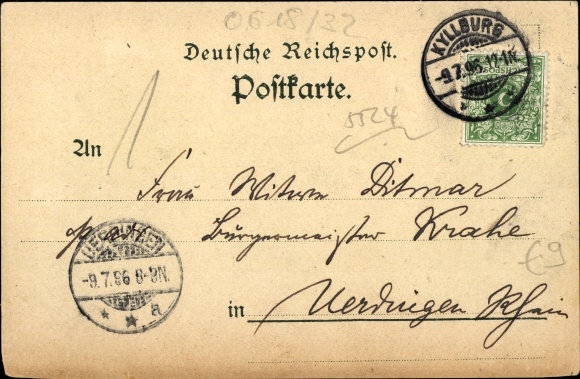 0618/32
Deutsche Reichspost.
Postkarte.
KYLLBURG
-9.7.96.12-1N.
5524
An
Frau Witwe Ditmar
Bürgermeister Krahe
UERDINGEN
-9.7.96 8-9N.
* * a
in Uerdingen Rhein
€9